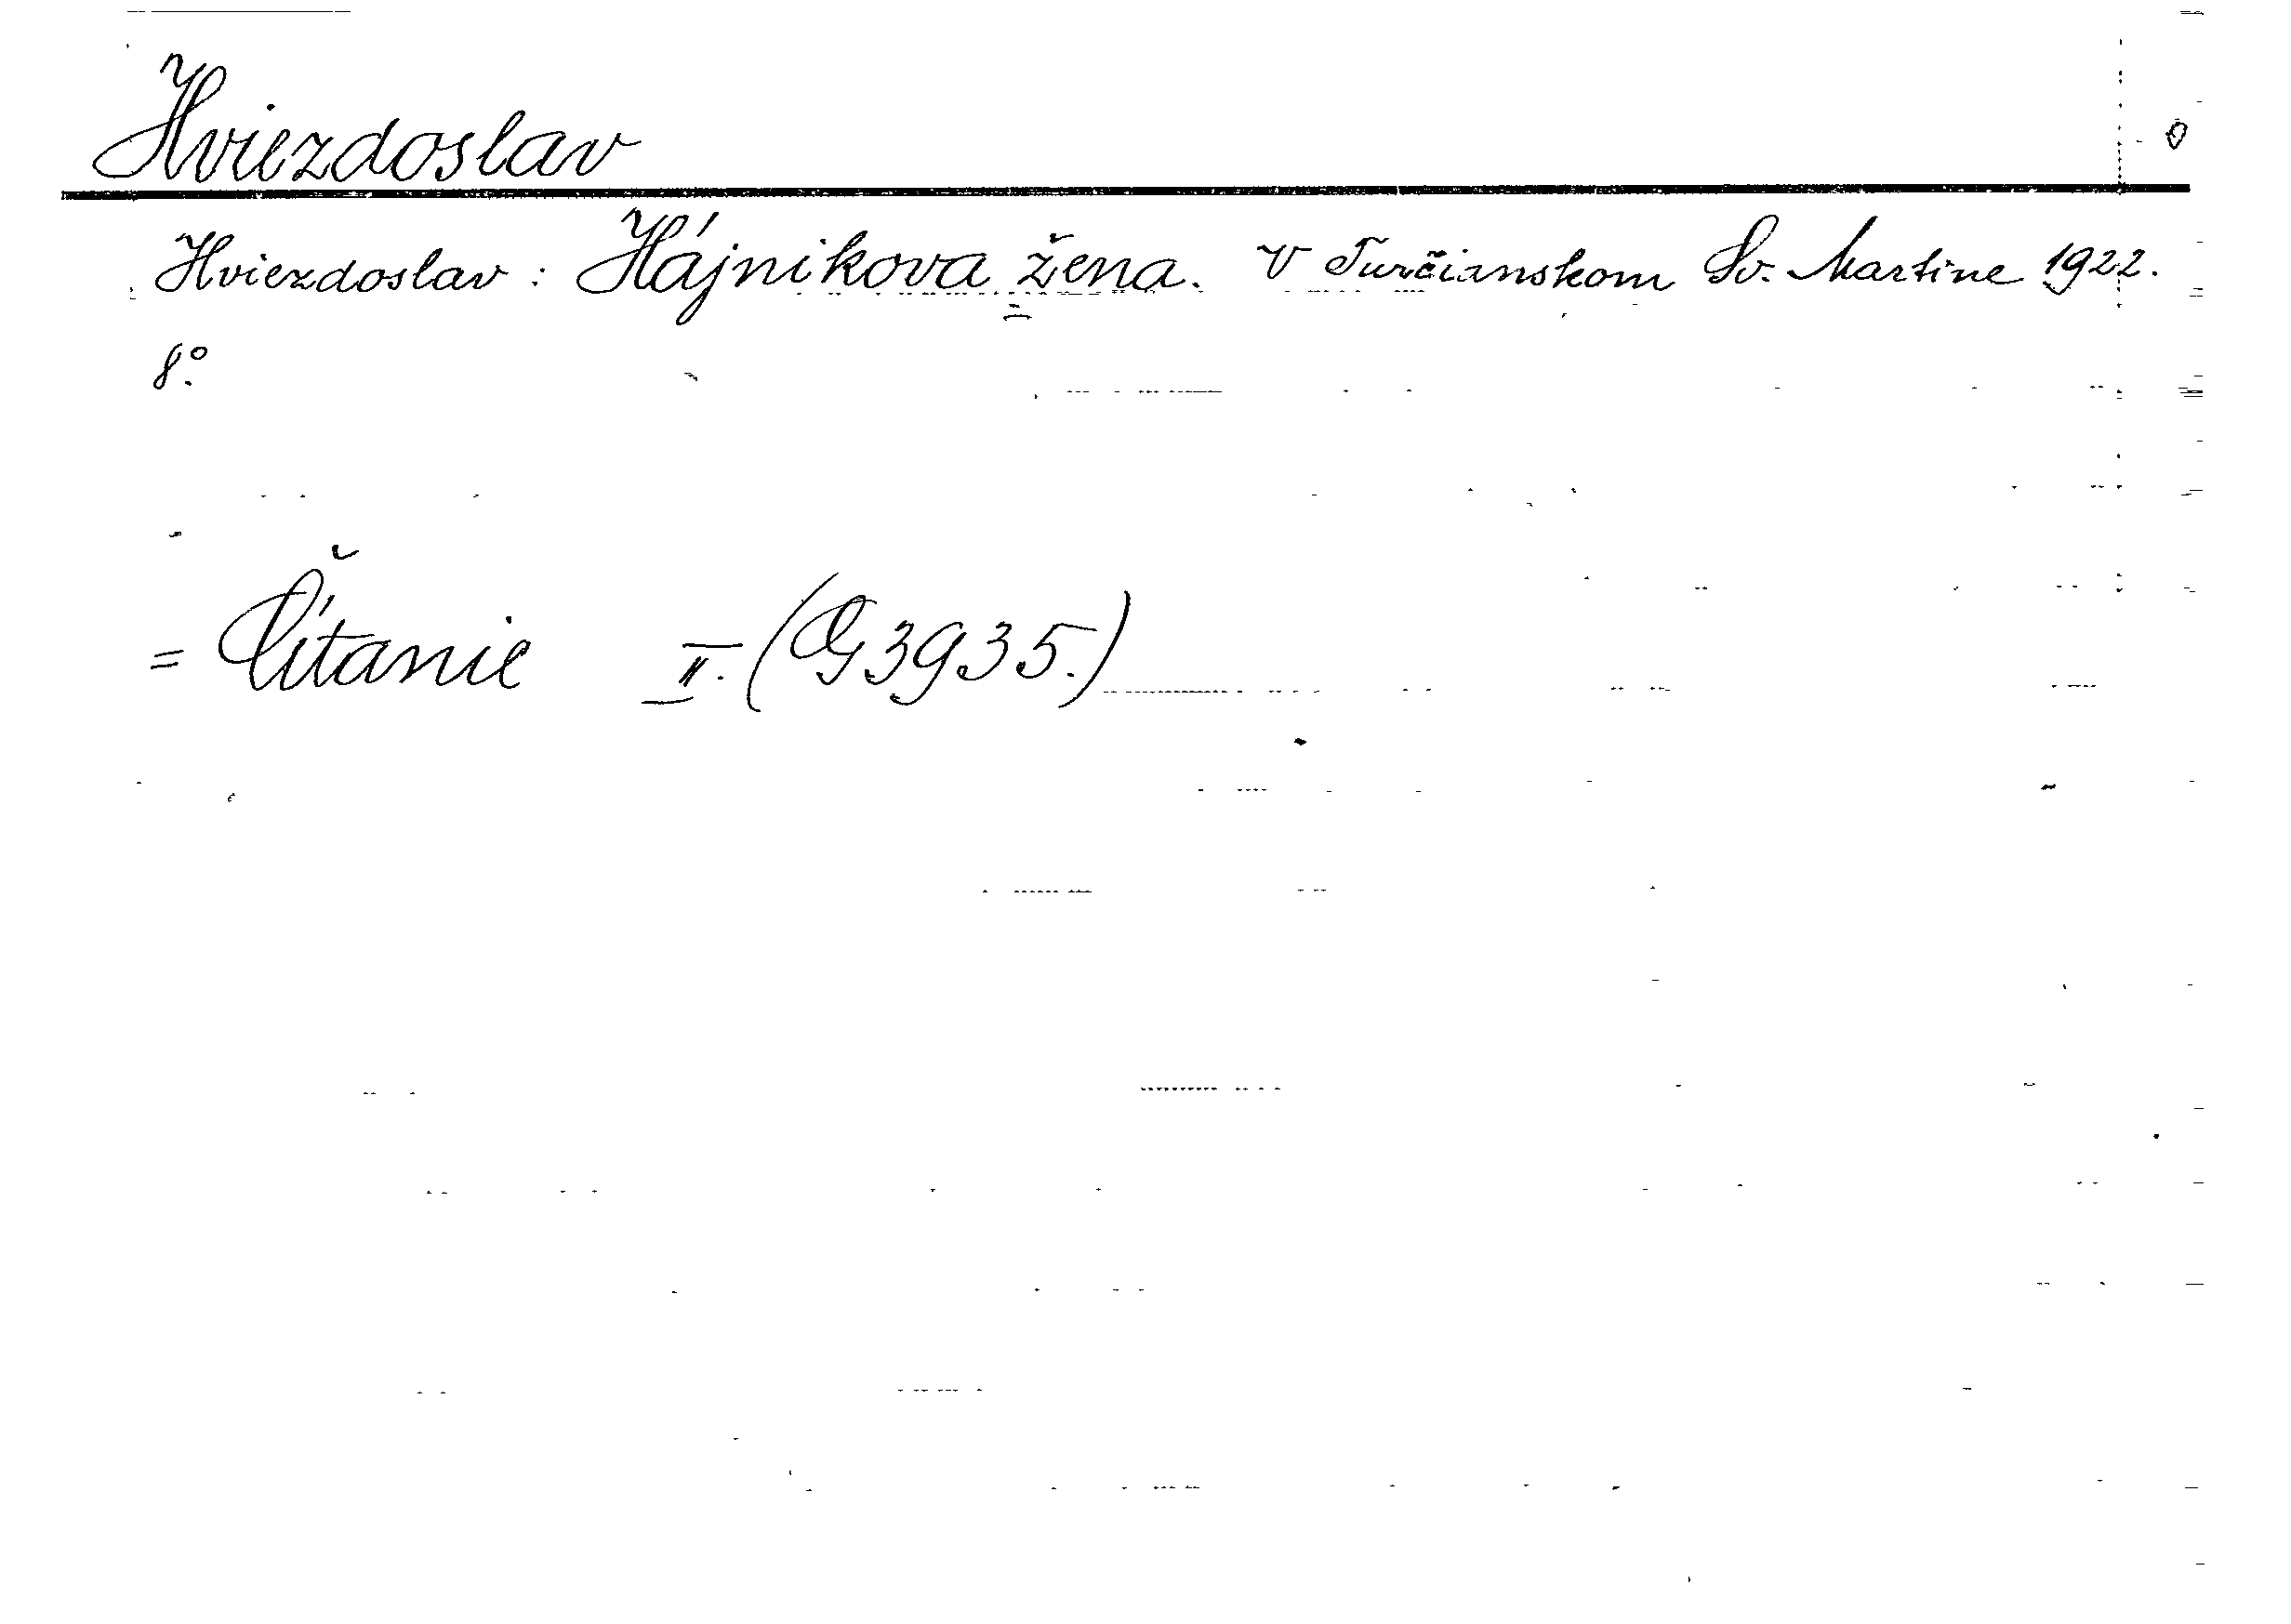 Hviezdoslav
Hviezdoslav: Hájnikova žena. V Turčianskom Sv. Martine 1922.
8°.
= Čítanie II. (G 3935.)